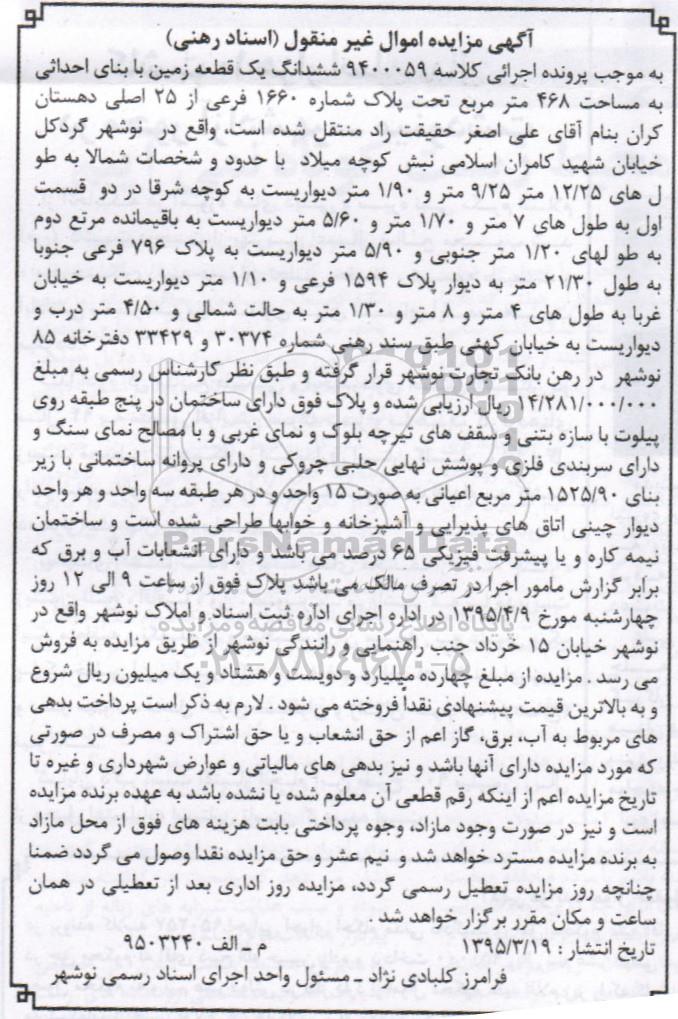 آگهی مزایده اموال غیر منقول (اسناد رهنی)
به موجب پرونده اجرائی کلاسه ۹۴۰۰۰۵۹ ششدانگ یک قطعه زمین با بنای احداثی
به مساحت ۴۶۸ متر مربع تحت پلاک شماره ۱۶۶۰ فرعی از ۲۵ اصلی دهستان
کران بنام آقای علی اصغر حقیقت راد منتقل شده است، واقع در نوشهر گردکل
خیابان شهید کامران اسلامی نبش کوچه میلاد با حدود و شخصات شمالا به طو
ل های ۱۲/۲۵ متر ۹/۲۵ متر و ۱/۹۰ متر دیواریست به کوچه شرقا در دو قسمت
اول به طول های ۷ متر و ۱/۷۰ متر و ۵/۶۰ متر دیواریست به باقیمانده مرتع دوم
به طو لهای ۱/۲۰ متر جنوبی و ۵/۹۰ متر دیواریست به پلاک ۷۹۶ فرعی جنوبا
به طول ۲۱/۳۰ متر به دیوار پلاک ۱۵۹۴ فرعی و ۱/۱۰ متر دیواریست به خیابان
غربا به طول های ۴ متر و ۸ متر و ۱/۳۰ متر به حالت شمالی و ۴/۵۰ متر درب و
دیواریست به خیابان کهئی طبق سند رهنی شماره ۳۰۳۷۴ و ۳۳۴۲۹ دفترخانه ۸۵
نوشهر در رهن بانک تجارت نوشهر قرار گرفته و طبق نظر کارشناس رسمی به مبلغ
۱۴/۲۸۱/۰۰۰/۰۰۰ ریال ارزیابی شده و پلاک فوق دارای ساختمان در پنج طبقه روی
پیلوت با سازه بتنی و سقف های تیرچه بلوک و نمای غربی و با مصالح نمای سنگ و
دارای سربندی فلزی و پوشش نهایی حلبی چروکی و دارای پروانه ساختمانی با زیر
بنای ۱۵۲۵/۹۰ متر مربع اعیانی به صورت ۱۵ واحد و در هر طبقه سه واحد و هر واحد
دیوار چینی اتاق های پذیرایی و آشپزخانه و خوابها طراحی شده است و ساختمان
نیمه کاره و با پیشرفت فیزیکی ۶۵ درصد می باشد و دارای انشعابات آب و برق که
برابر گزارش مامور اجرا در تصرف مالک می باشد پلاک فوق از ساعت ۹ الی ۱۲ روز
چهارشنبه مورخ ۱۳۹۵/۴/۹ در اداره اجرای اداره ثبت اسناد و املاک نوشهر واقع در
نوشهر خیابان ۱۵ خرداد جنب راهنمایی و رانندگی نوشهر از طریق مزایده به فروش
می رسد . مزایده از مبلغ چهارده میلیارد و دویست و هشتاد و یک میلیون ریال شروع
و به بالاترین قیمت پیشنهادی نقداً فروخته می شود . لازم به ذکر است پرداخت بدهی
های مربوط به آب، برق، گاز اعم از حق انشعاب و یا حق اشتراک و مصرف در صورتی
که مورد مزایده دارای آنها باشد و نیز بدهی های مالیاتی و عوارض شهرداری و غیره تا
تاریخ مزایده اعم از اینکه رقم قطعی آن معلوم شده یا نشده باشد به عهده برنده مزایده
است و نیز در صورت وجود مازاد، وجوه پرداختی بابت هزینه های فوق از محل مازاد
به برنده مزایده مسترد خواهد شد و نیم عشر و حق مزایده نقدا وصول می گردد ضمنا
چنانچه روز مزایده تعطیل رسمی گردد، مزایده روز اداری بعد از تعطیلی در همان
ساعت و مکان مقرر برگزار خواهد شد .
تاریخ انتشار : ۱۳۹۵/۳/۱۹ م - الف ۹۵۰۳۲۴۰
فرامرز کلبادی نژاد - مسئول واحد اجرای اسناد رسمی نوشهر
ParsNamadData
پایگاه اطلاع رسانی مناقصه و مزایده
۰۲۱-۸۸۳۴۹۶۷۰-۵